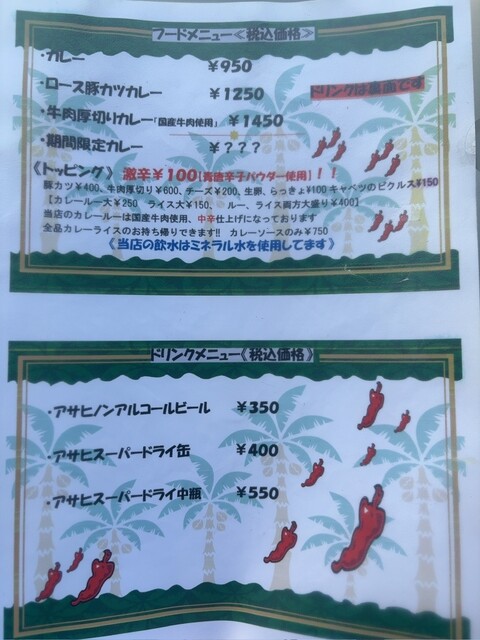 フードメニュー《税込価格》
・カレー ￥950
・ロース豚カツカレー ￥1250
ドリンクは裏面です
・牛肉厚切りカレー「国産牛肉使用」 ￥1450
・期間限定カレー ￥？？？
《トッピング》 激辛￥100【青徳唐辛子パウダー使用】！！
豚カツ￥400、牛肉厚切り￥600、チーズ￥200、生卵、らっきょ￥100 キャベツのピクルス￥150
【カレールー大￥250 ライス大￥150、 ルー、ライス両方大盛り￥400】
当店のカレールーは国産牛肉使用、中辛仕上げになっております
全品カレーライスのお持ち帰りできます!! カレーソースのみ￥750
《当店の飲水はミネラル水を使用してます》
ドリンクメニュー《税込価格》
・アサヒノンアルコールビール ￥350
・アサヒスーパードライ缶 ￥400
・アサヒスーパードライ中瓶 ￥550